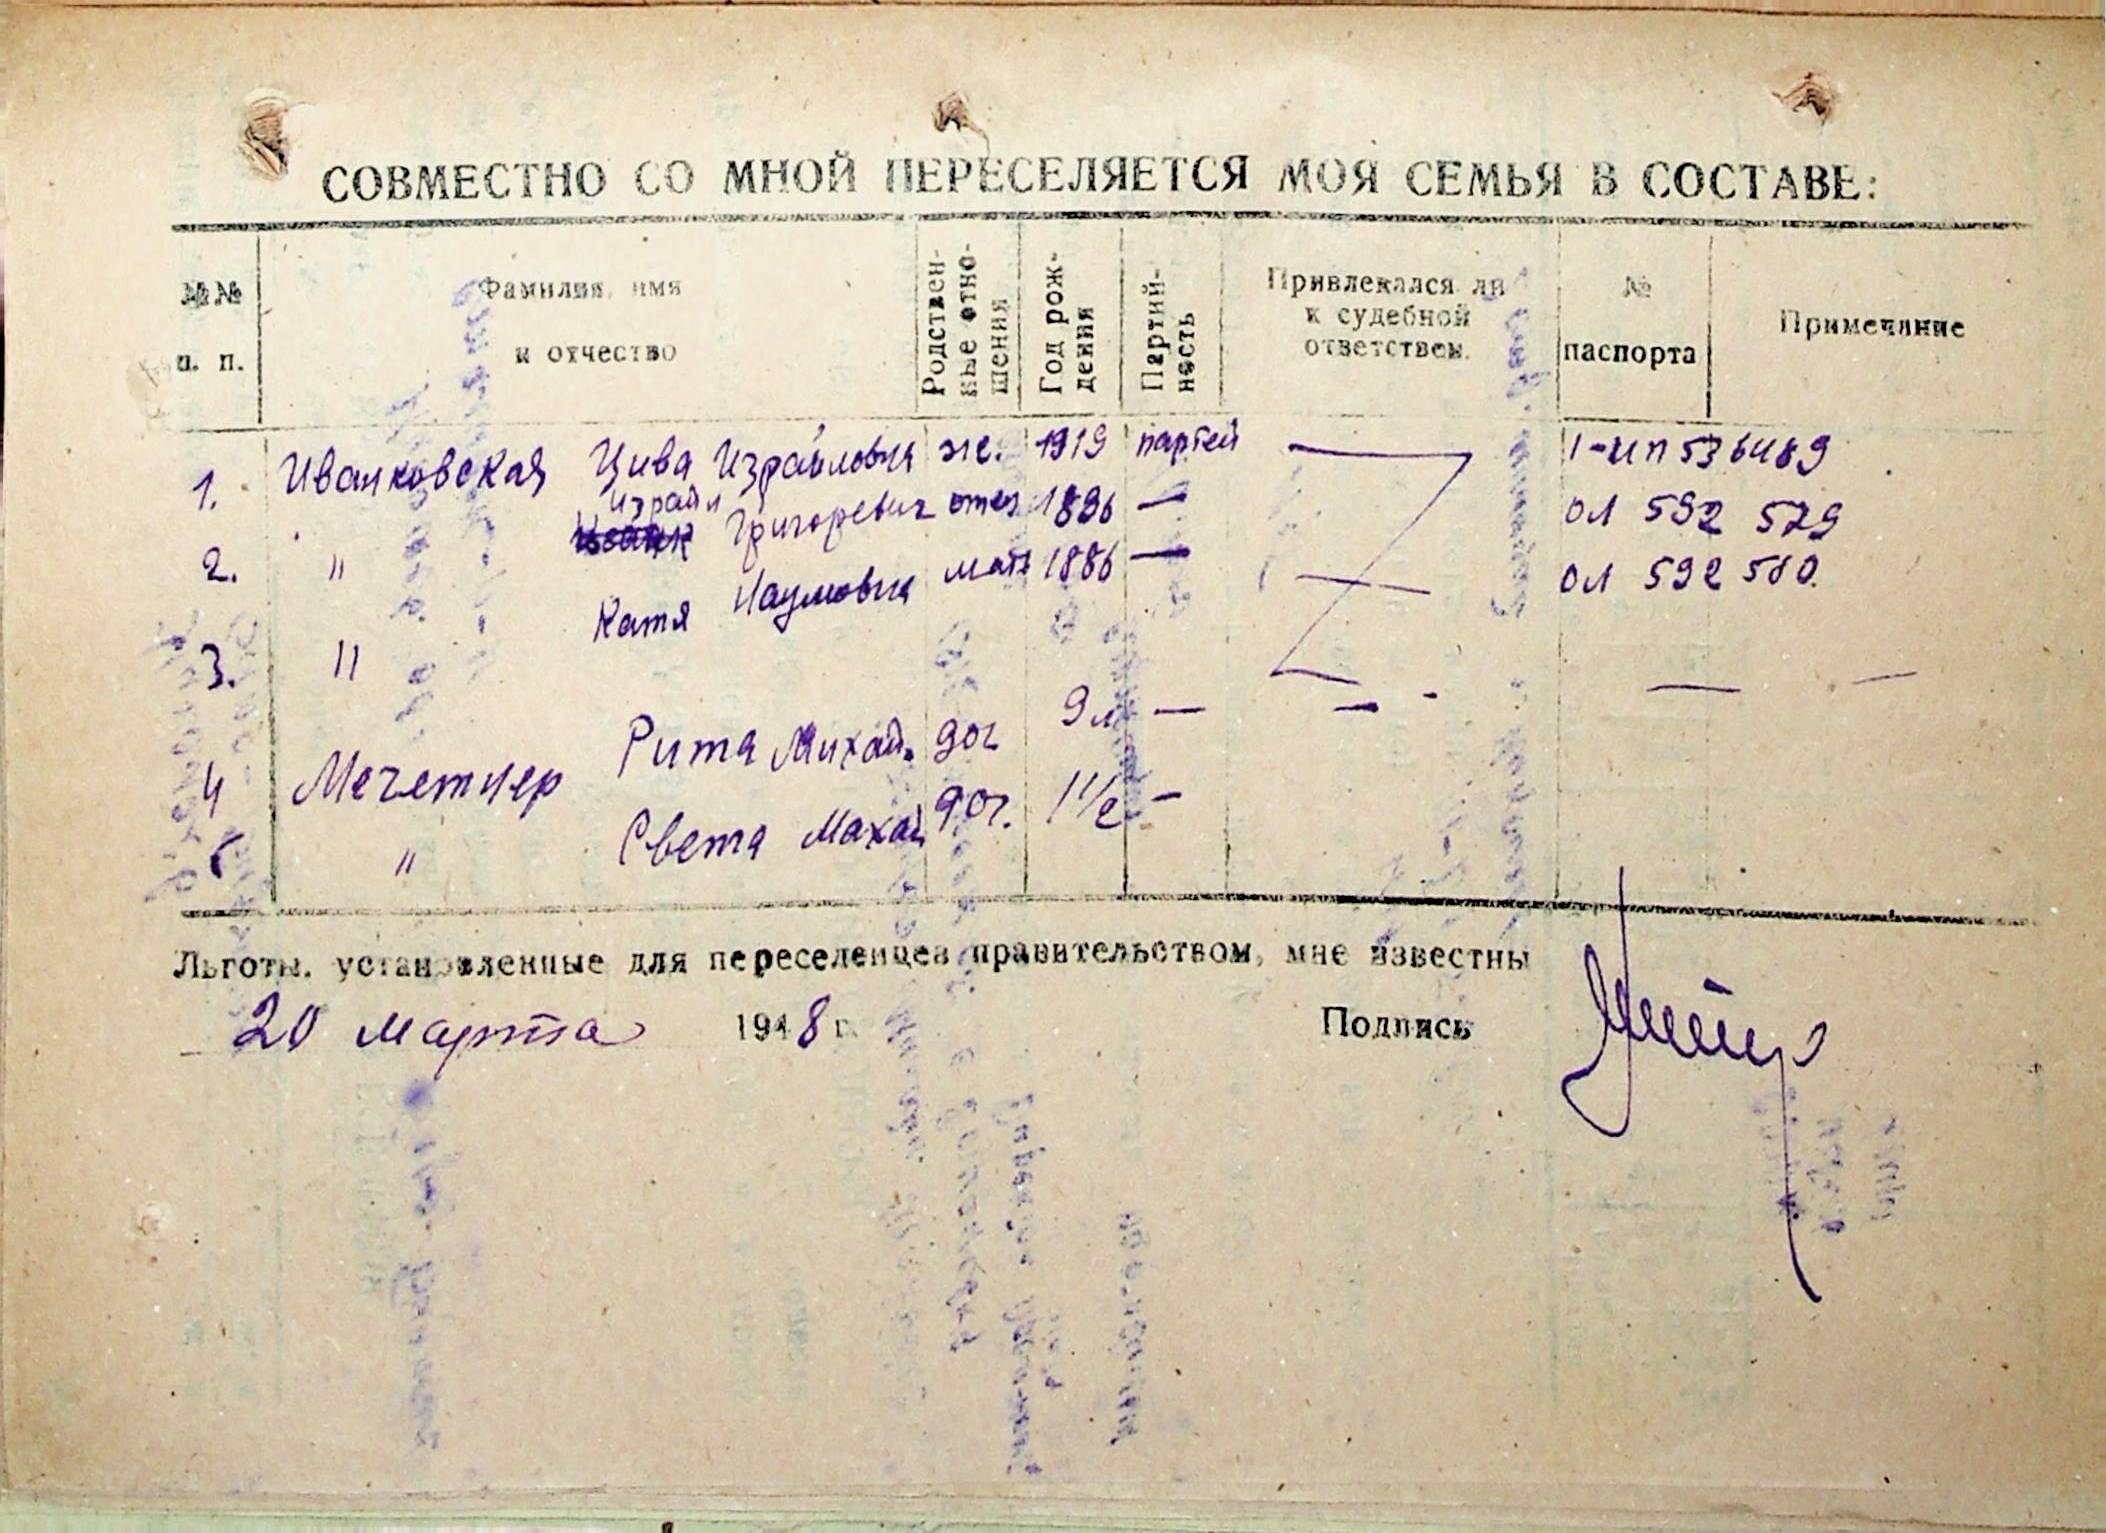 СОВМЕСТНО СО МНОЙ ПЕРЕСЕЛЯЕТСЯ МОЯ СЕМЬЯ В СОСТАВЕ:
№№ п. п. Фамилия, имя и отчество Родственные отношения Год рождения Партийность Привлекался ли к судебной ответствен. № паспорта Примечание
1. Иванковская Цива Израиловна же. 1919 партей — 1-ИП 536489
2. " Израил Григоревич отец 1896 — ОЛ 592 579
3. " Катя Наумовна мать 1886 — — ОЛ 592 580.
4 Мечетнер Рита Михай. доч 9 л — — — —
" Света Михай доч. 1 1/2 —
Льготы, установленные для переселенцев правительством, мне известны
20 марта 1948 г. Подпись